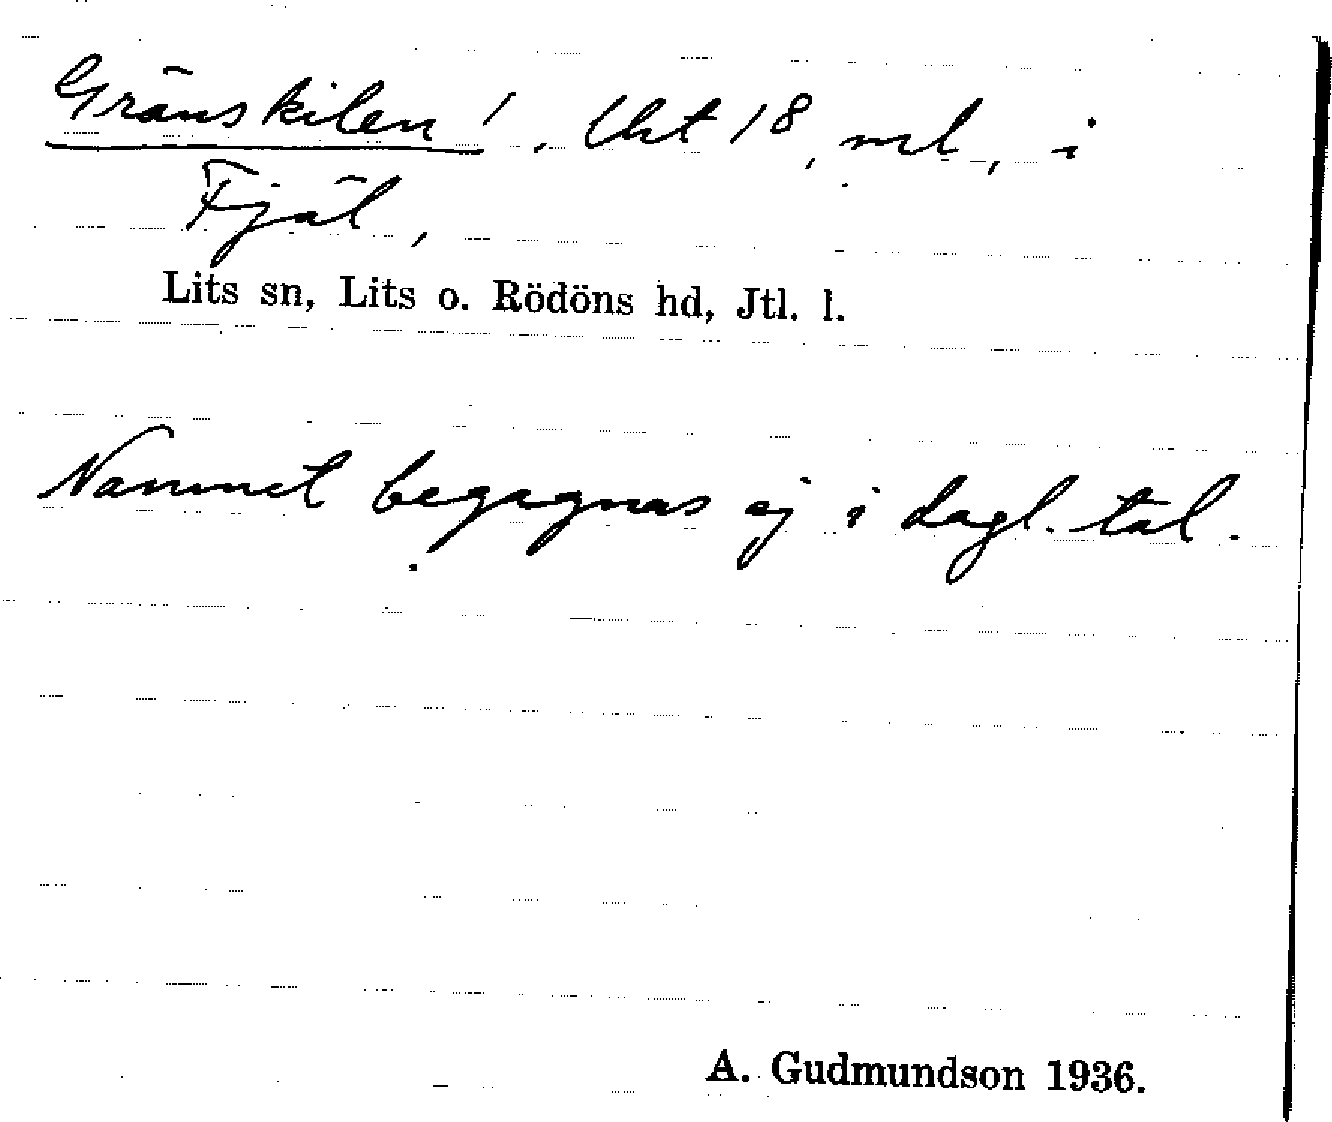 Gränskilen!. Urt 18, ml, i
Fjäl,
Lits sn, Lits o. Rödöns hd, Jtl. l.
Namnet begagnas ej i dagl. tal.
A. Gudmundson 1936.